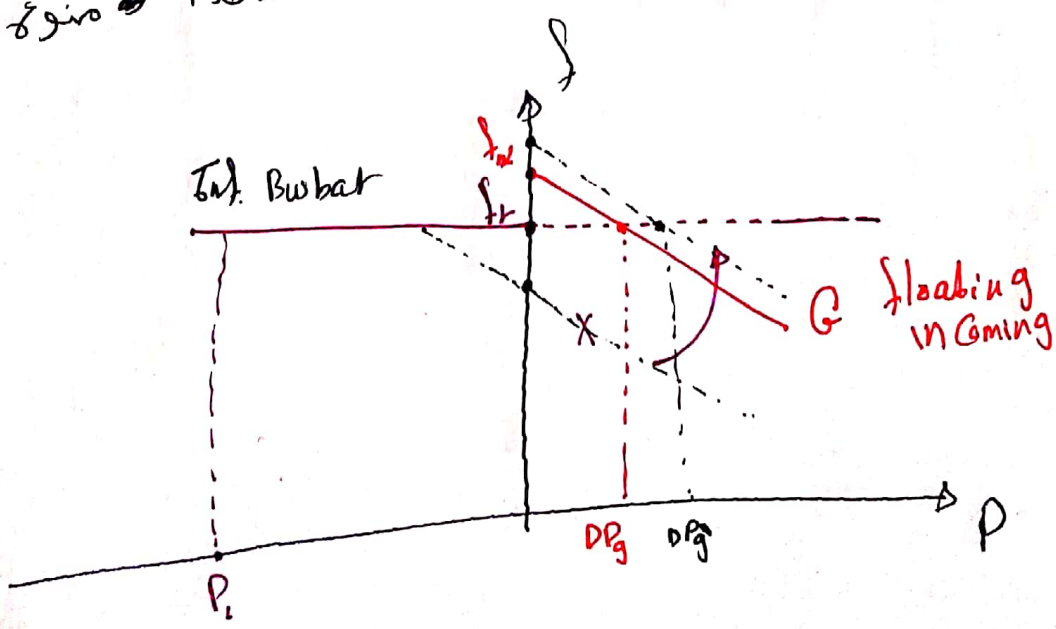 f
f_nl
Inf. Busbar
f_r
G floating
incoming
X
DPg DPg
P
P_L